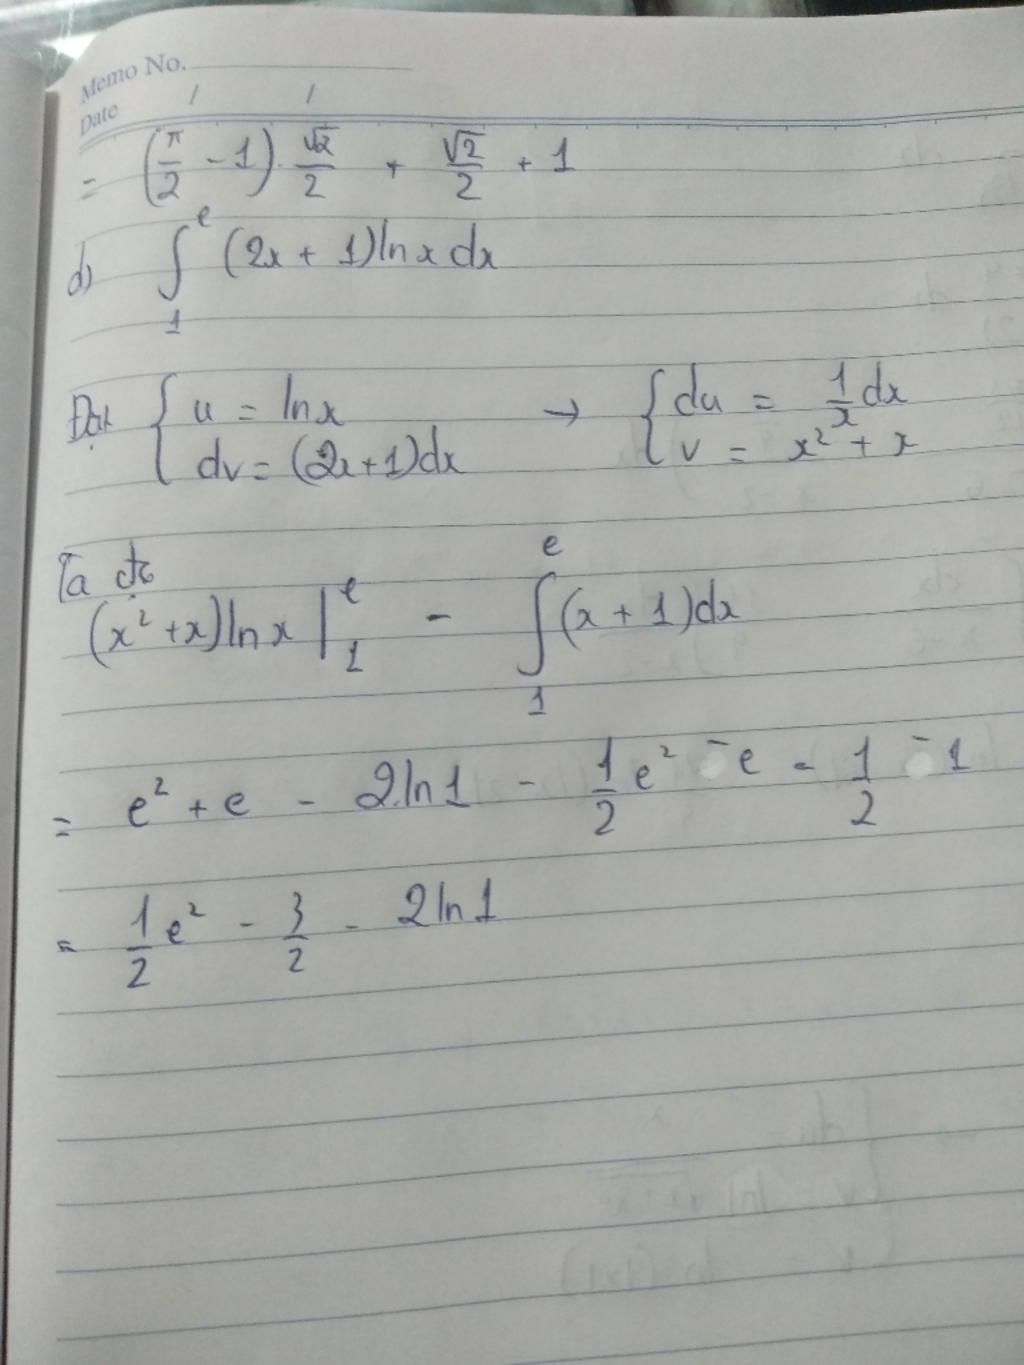 Memo No.
Date / /
= (π/2 - 1) · √2/2 + √2/2 + 1
d) ∫₁ᵉ (2x + 1) ln x dx
Đặt { u = ln x → { du = 1/x dx
dv = (2x+1)dx v = x² + x
Ta đc
(x² + x) ln x |₁ᵉ - ∫₁ᵉ (x + 1) dx
= e² + e - 2.ln1 - 1/2 e² - e - 1/2 - 1
= 1/2 e² - 3/2 - 2 ln 1